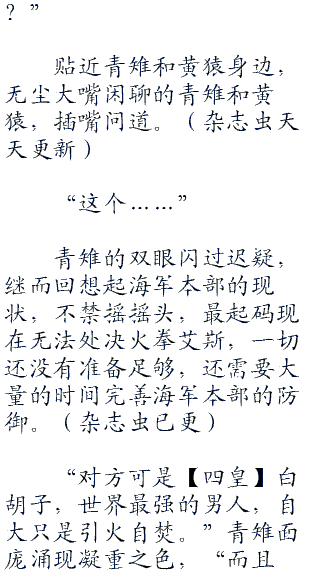 ？”
贴近青雉和黄猿身边，
无尘大嘴闲聊的青雉和黄
猿，插嘴问道。（杂志虫天
天更新）
“这个……”
青雉的双眼闪过迟疑，
继而回想起海军本部的现
状，不禁摇摇头，最起码现
在无法处决火拳艾斯，一切
还没有准备足够，还需要大
量的时间完善海军本部的防
御。（杂志虫已更）
“对方可是【四皇】白
胡子，世界最强的男人，自
大只是引火自焚。”青雉面
庞涌现凝重之色，“而且